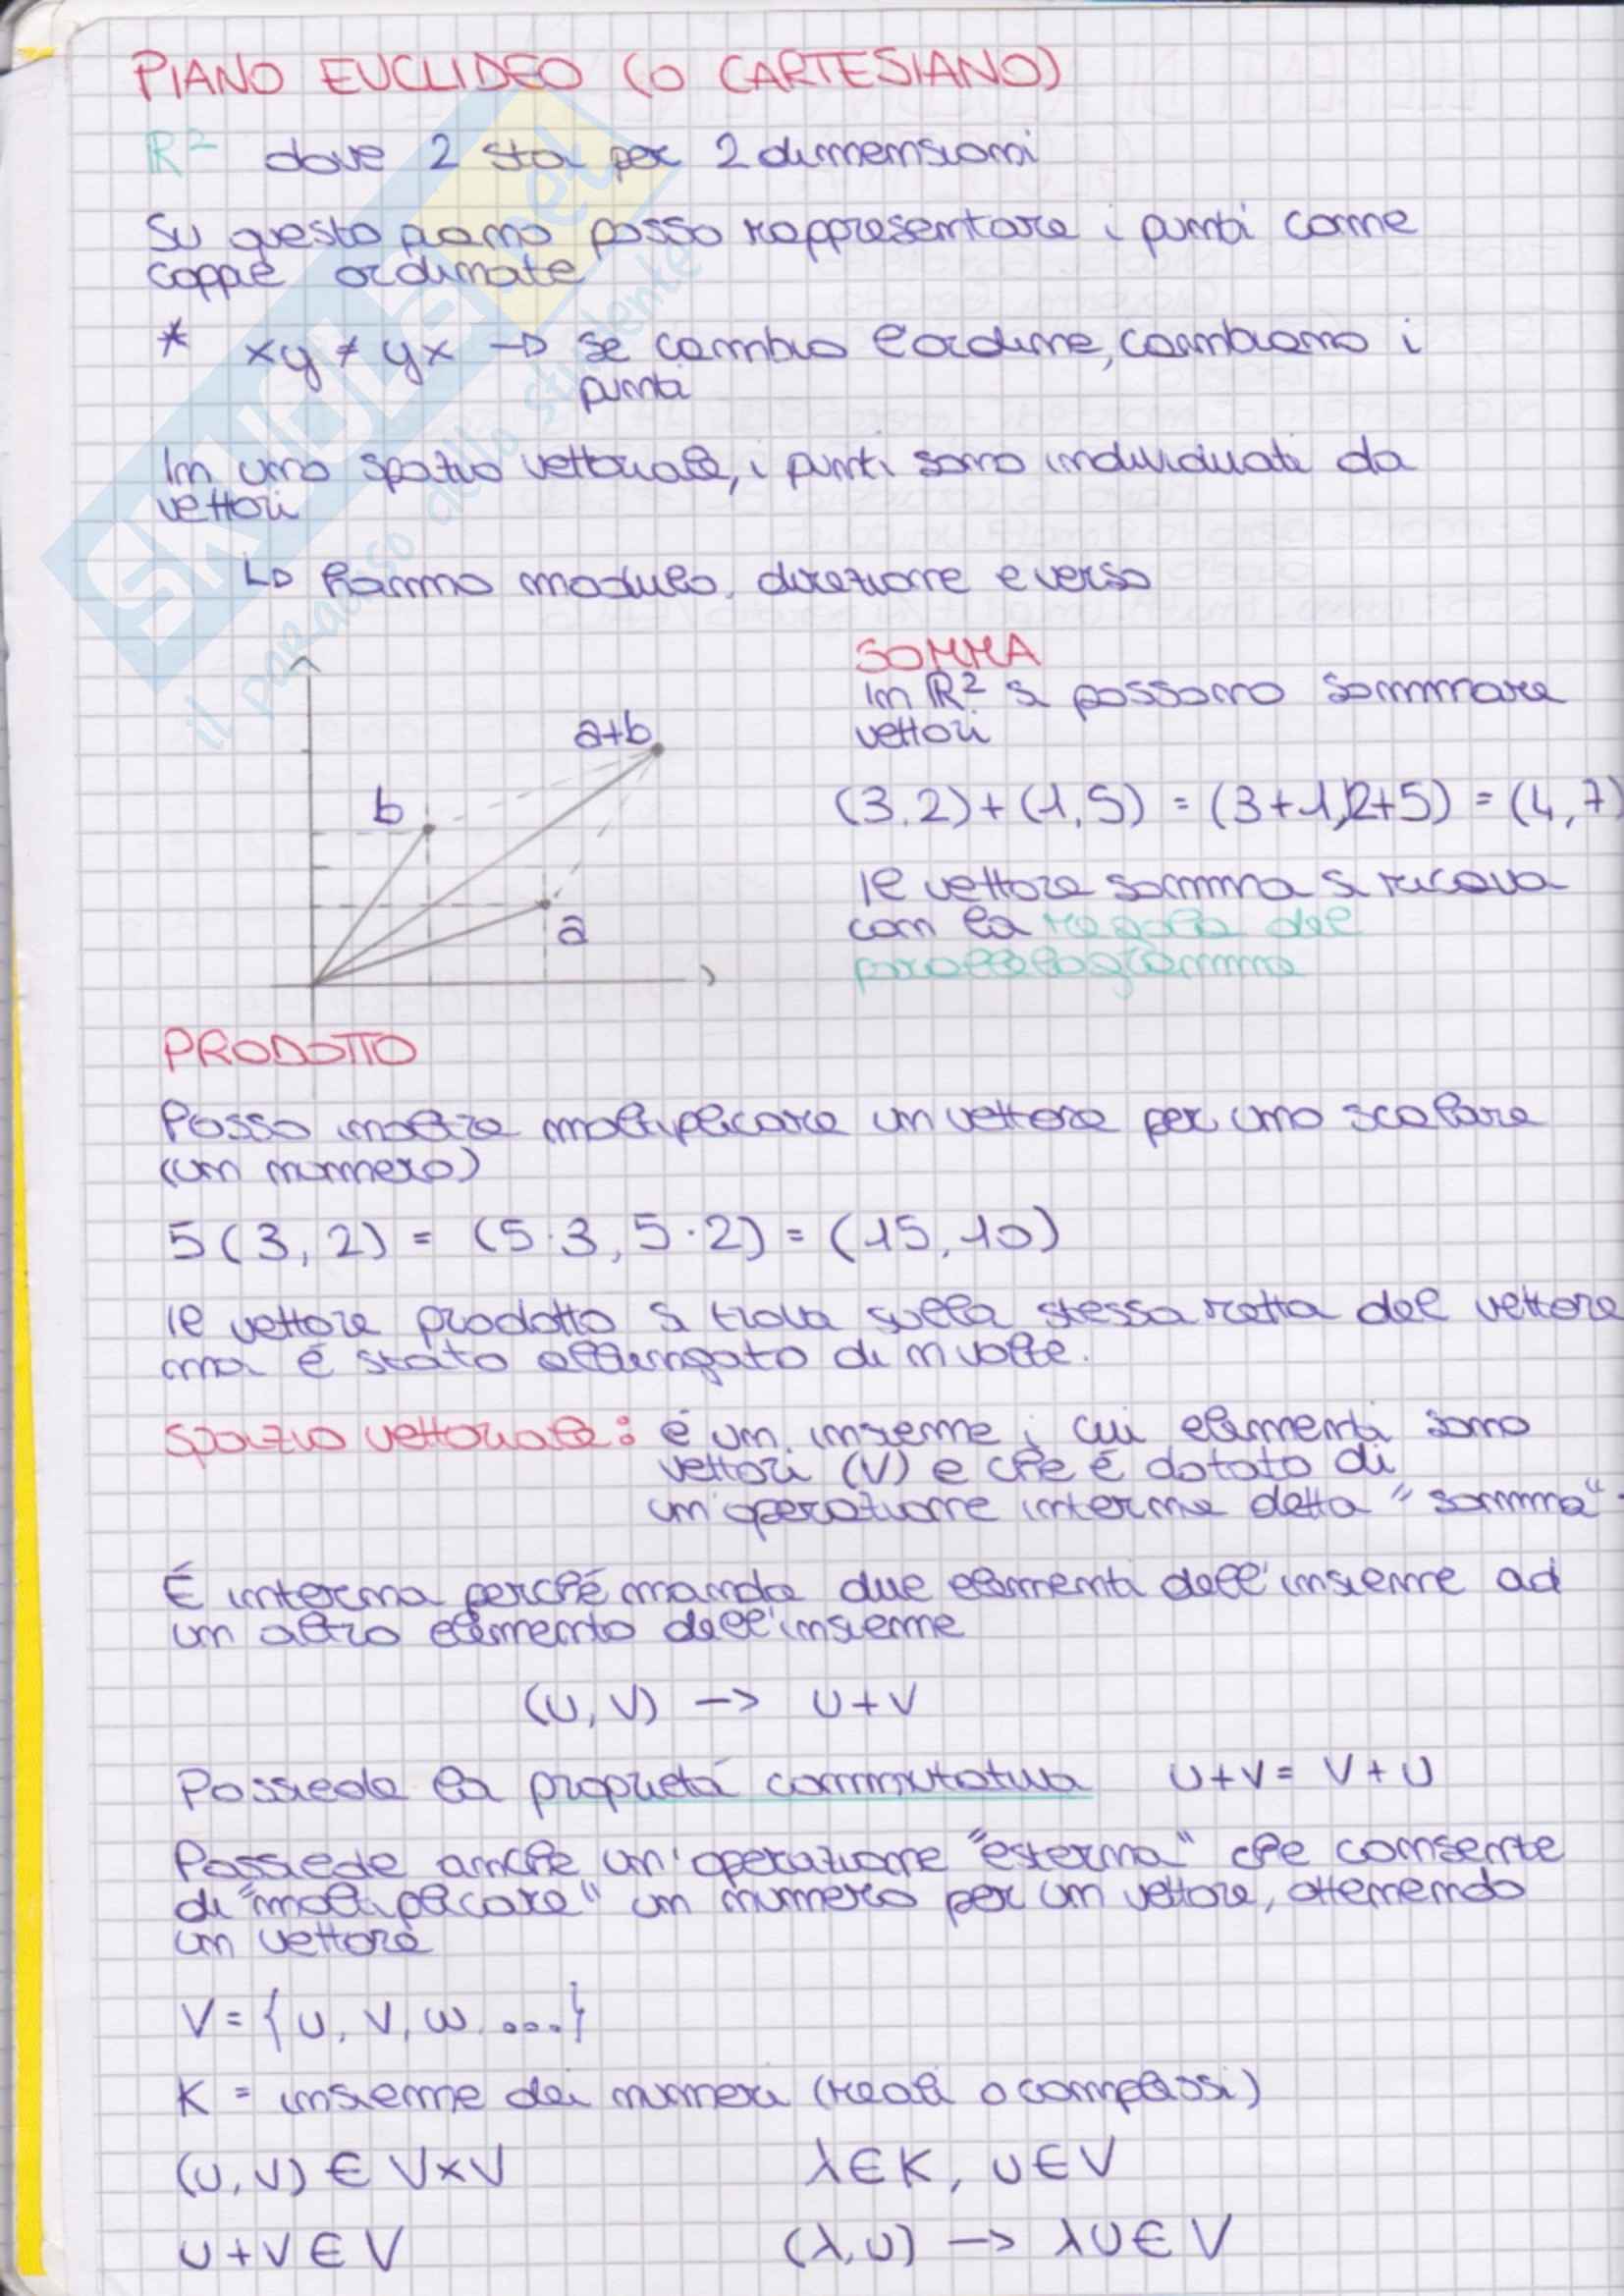 PIANO EUCLIDEO (O CARTESIANO)
R² dove 2 sta per 2 dimensioni
Su questo piano posso rappresentare i punti come
coppie ordinate
* xy ≠ yx → se cambio l'ordine, cambiano i
punti
In uno spazio vettoriale, i punti sono individuati da
vettori
↳ hanno modulo, direzione e verso
a+b
b
a
SOMMA
In R² si possono sommare
vettori
(3,2)+(1,5) = (3+1,2+5) = (4,7)
Il vettore somma si ricava
con la regola del
parallelogramma
PRODOTTO
Posso inoltre moltiplicare un vettore per uno scalare
(un numero)
5(3,2) = (5·3, 5·2) = (15,10)
Il vettore prodotto si trova sulla stessa retta del vettore
ma é stato allungato di n volte.
Spazio vettoriale: é un insieme i cui elementi sono
vettori (V) e che é dotato di
un'operazione interna detta "somma".
É interna perché manda due elementi dell'insieme ad
un altro elemento dell'insieme
(u,v) -> u+v
Possiede la proprietá commutativa u+v = v+u
Possiede anche un'operazione "esterna" che consente
di "moltiplicare" un numero per un vettore, ottenendo
un vettore
V = {u, v, w, ....}
K = insieme dei numeri (reali o complessi)
(u,v) ∈ V×V λ∈K, u∈V
u+v∈V (λ,u) -> λu∈V
SKUOLA.net
il paradiso dello studente